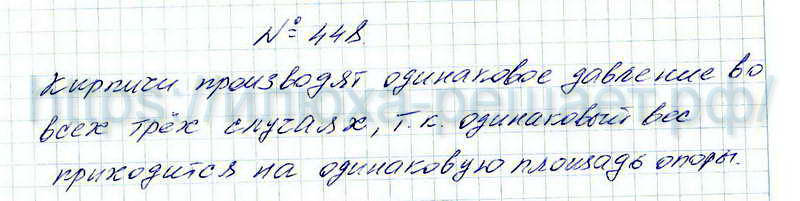 № 448.
Кирпичи производят одинаковое давление во
всех трёх случаях, т.к. одинаковый вес
приходится на одинаковую площадь опоры.